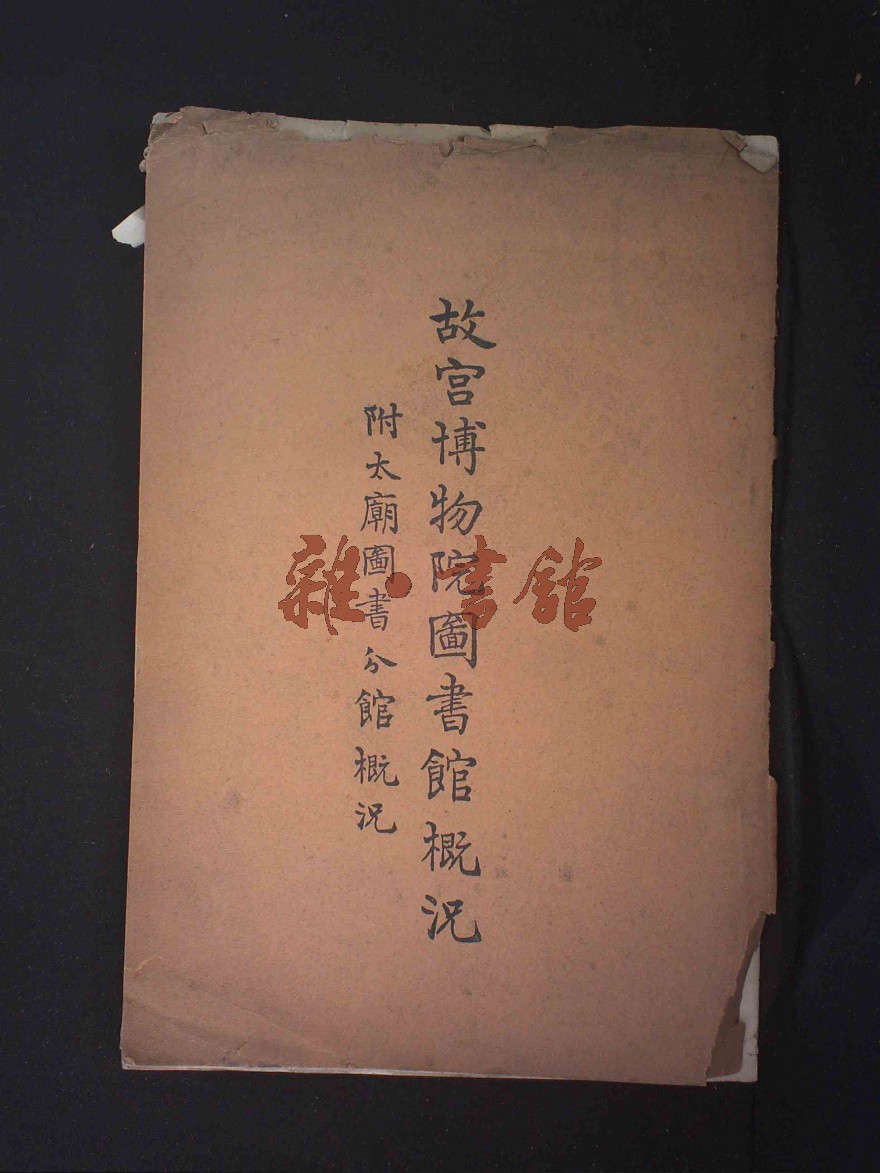 故宮博物院圖書館概況
附太廟圖書分館概況
雜·書館